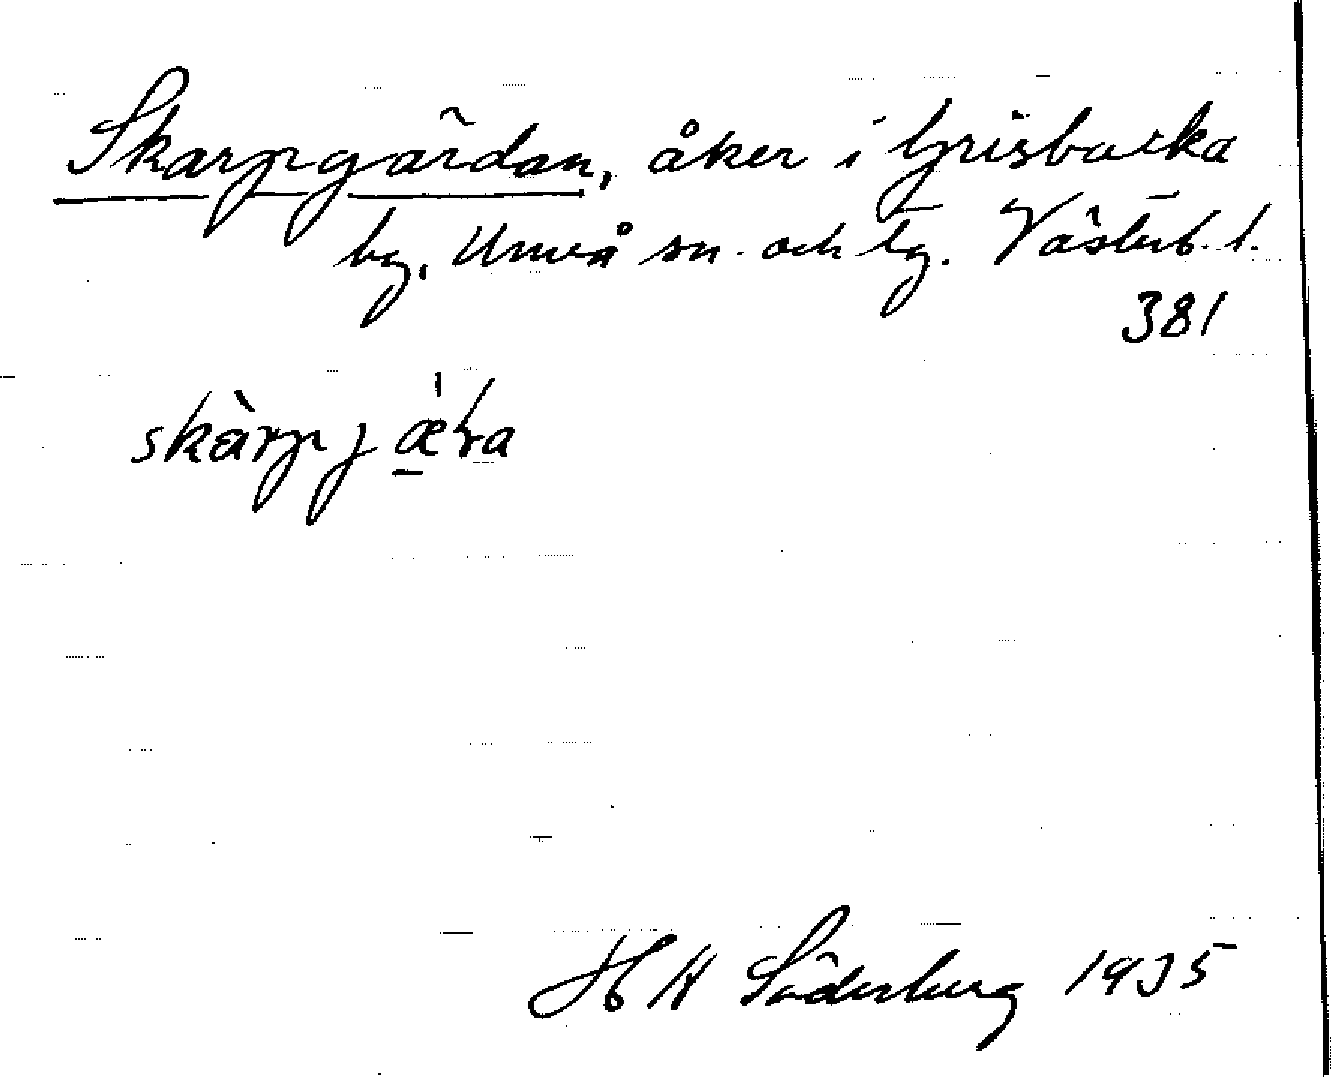 Skarpgärdan, åker i Grisbacka
by, Umeå sn och tg. Västerb. l.
381
skàrpj
H A Söderberg 1935